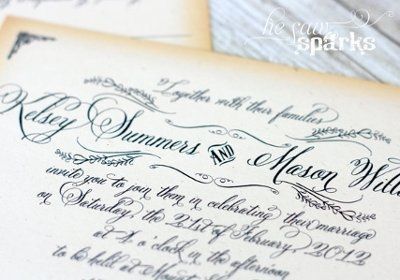 he saw
sparks
Together with their families
Kelsey Summers AND Mason
invite you to join them in celebrating their marriage
on Saturday, the 21st of February, 2012
at 4 o'clock in the afternoon
to be held at